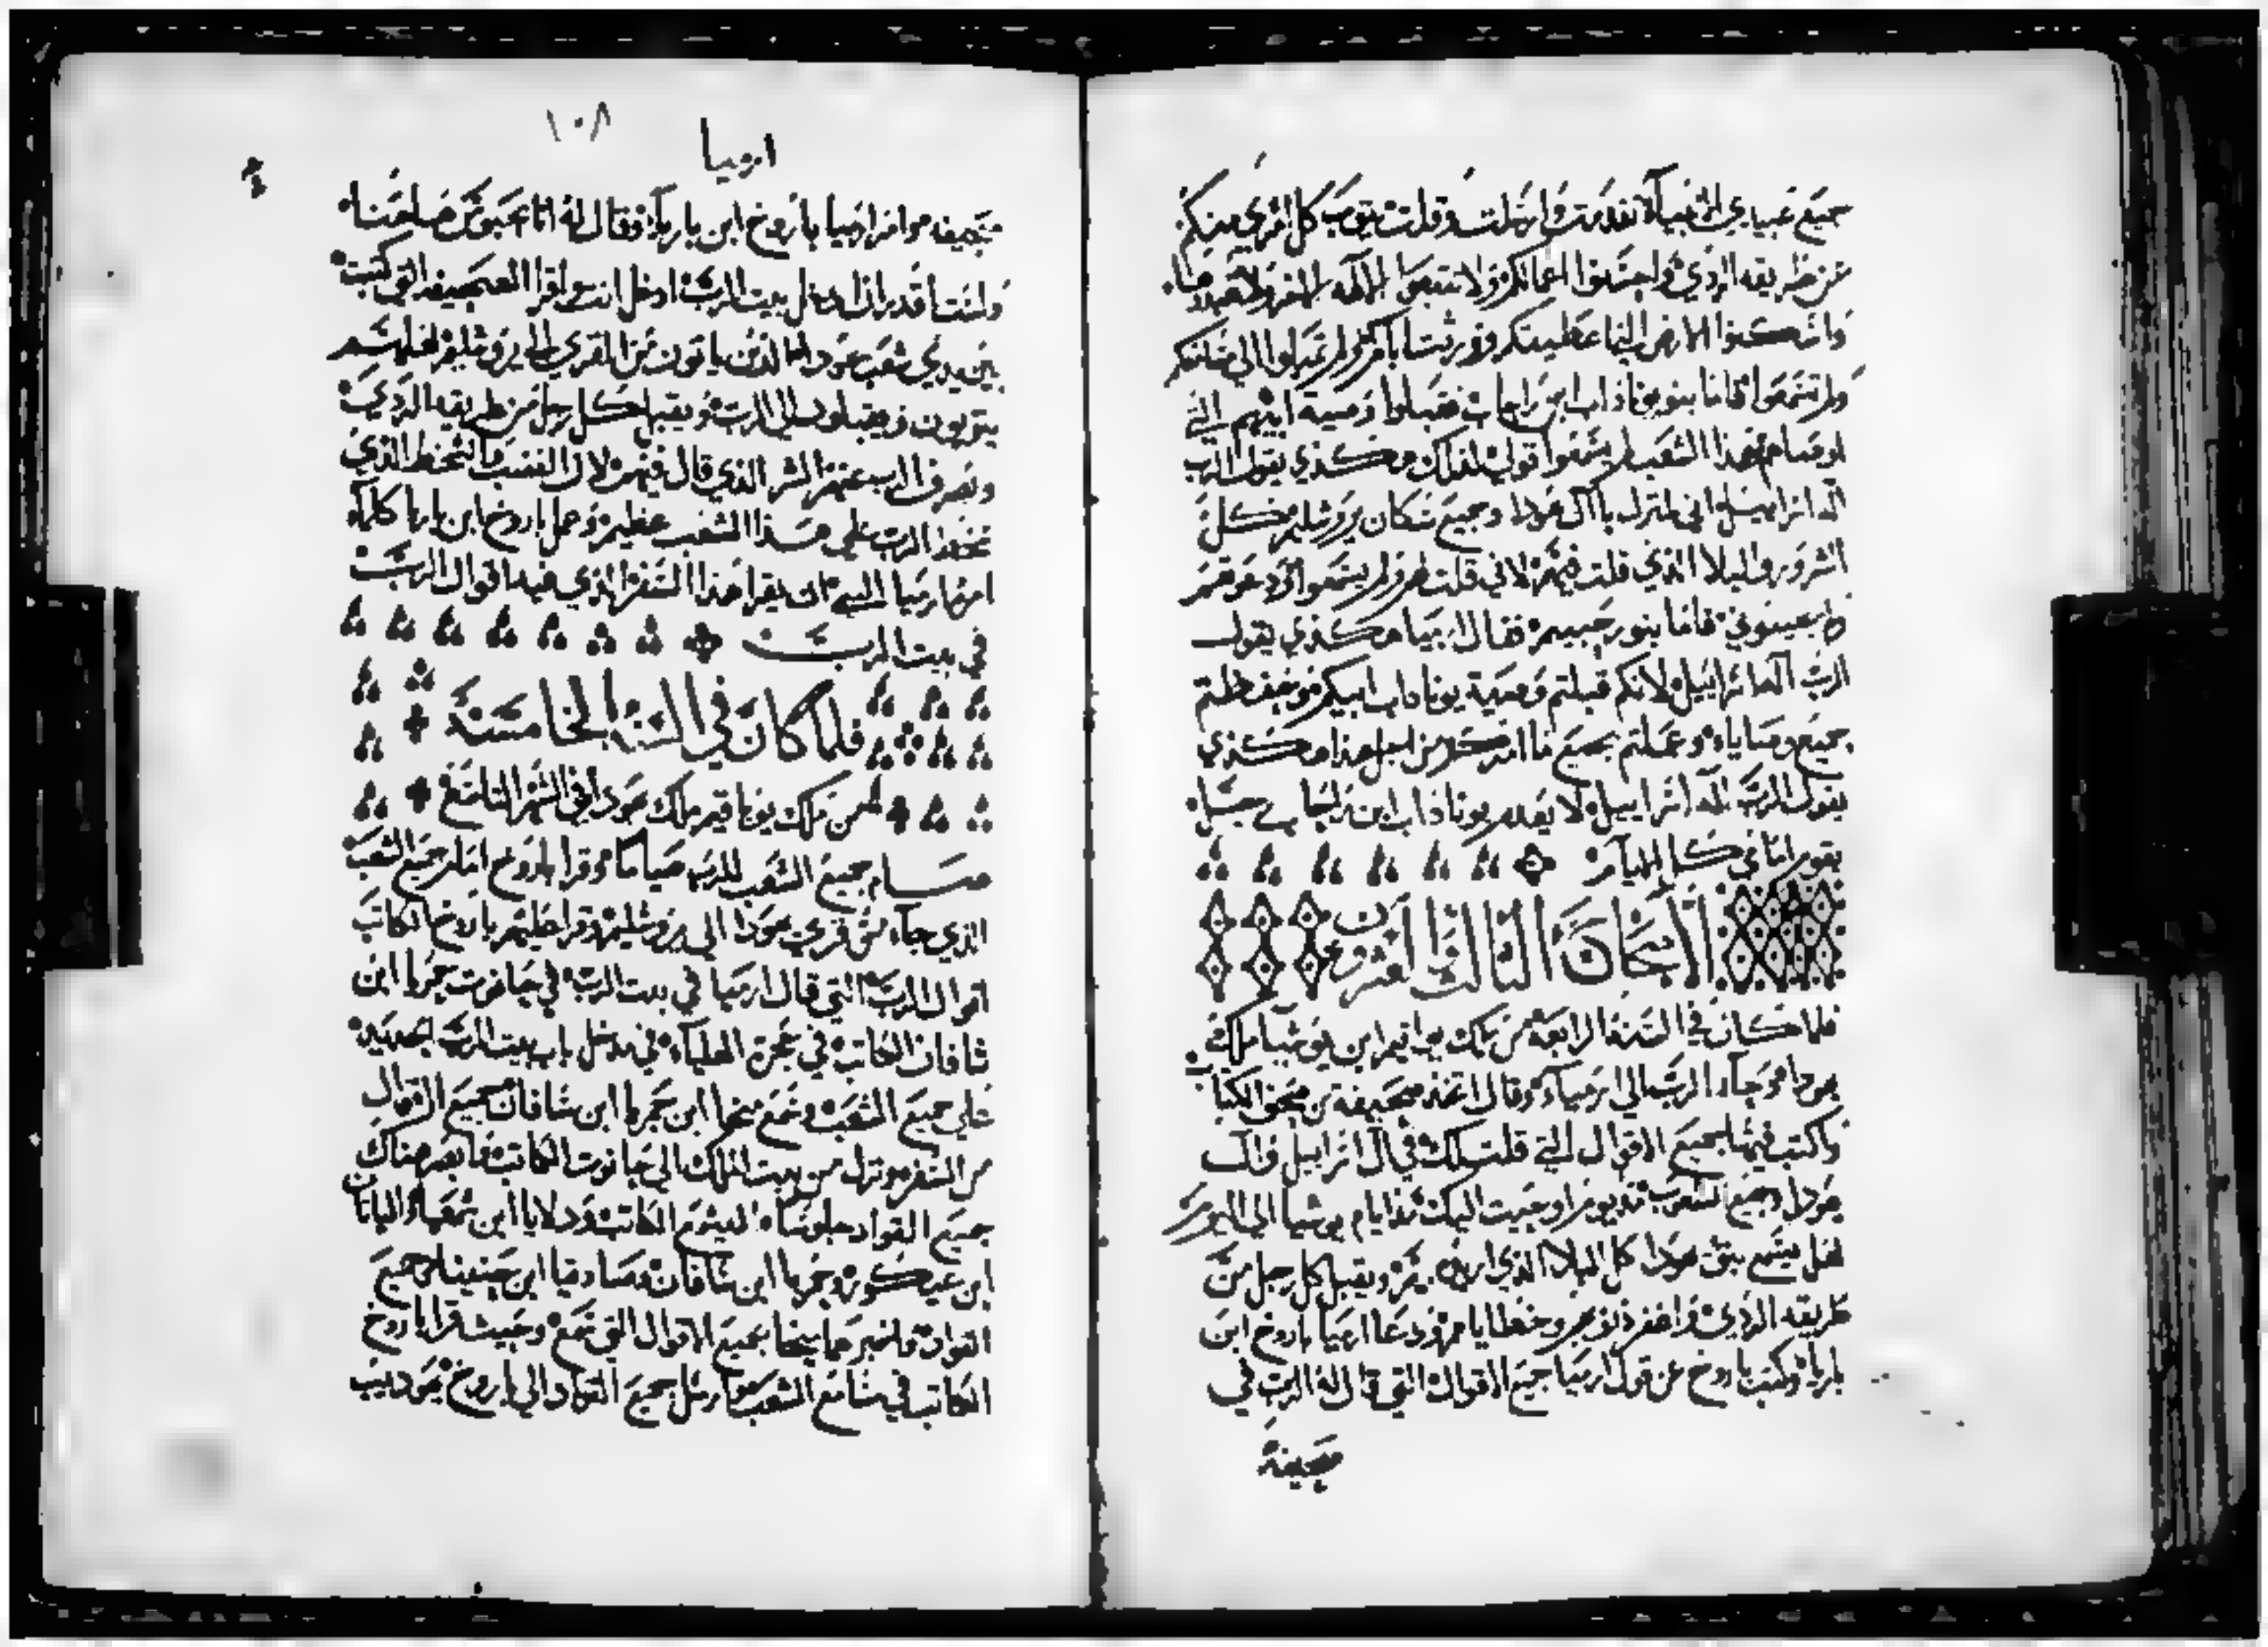 جميع عبيدي الانبياء تقدمت وارسلت وقلت يتوب كل امرى منكم
عن طريقه الردي واحسنوا اعمالكم ولا تتبعوا الهه اخر ولا تعبدوها
واسكنوا الارض التي اعطيتكم ورثتها باكم ولم تميلوا الي مسامعكم
ولم تسمعوا فاما بنو يوناداب ابن راجاب فقبلوا وصية ابيهم التي
اوصاهم هذا الشعب لم يسمعوا قولي لذلك هكذي يقول الرب
اله اسراييل اني منزل بال يهودا وجميع سكان يروشليم كل
الشرور والبلا الذي قلت فيهم لاني قلت لهم ولم يسمعوا ودعوتهم
ولم يجيبوني فاما بنو رجيبيم فقال ارميا هكذي يقول
الرب اله اسراييل لانكم قبلتم وصية يوناداب ابيكم وحفظتم
جميع وصاياه وعملتم بجميع ما امركم من اجل هذا هكذي
يقول الرب اله اسراييل لا يعدم يوناداب ابن راجاب رجل
يقوم امامي كل الايام
الاصحاح الثالث والعشرون
فلما كان في السنة الرابعة من ملك يواقيم ابن يوشيا ملك
يهودا وجاء الرب الي ارمياء وقال اتخذ صحيفة من صحف الكتاب
واكتب فيها جميع الاقوال التي قلت لك في ال اسراييل وال
يهودا وجميع الشعوب منذ يوم اوحيت اليك منذ ايام يوشيا الي اليوم
لعل يسمع بيت يهودا كل البلا الذي اريد بهم ويقبل كل رجل من
طريقه الردي واغفر ذنوبهم وخطاياهم ودعا ارميا باروخ ابن
باريا وكتب باروخ عن قول ارميا جميع الاقوال التي قال له الرب في
صحيفة
ارميا
١٠٨
صحيفه وامر ارميا باروخ ابن باريا وقال له انا محبوس هاهنا
ولست اقدر ان ادخل بيت الرب ادخل انت واقرا الصحيفه التي كتبت
بين يدي شعب يهودا الذين ياتون من القري الي يروشليم لعلهم
يتوبون ويقبلون الي الرب ويقبل كل رجل من طريقه الردي
ويصرف الرب عنهم الشر الذي قال فيهم لان الغضب والسخط الذي
سخط الرب علي هذا الشعب عظيم وعمل باروخ ابن باريا كلما
امره ارميا النبي ان يقرا هذا السفر الذي فيه اقوال الرب
في بيت الرب
فلما كان في السنه الخامسة
من ملك يواقيم ملك يهودا في الشهر التاسع
صام جميع الشعب للرب صياما وقرا باروخ امام جميع الشعب
الذي جاء من قري يهودا الي يروشليم وقرا عليهم باروخ الكاتب
اقوال الرب التي قال ارميا في بيت الرب في حانوت جمريا ابن
شافان الكاتب في صحن العلياء في مدخل باب بيت الرب الجديد
علي جميع الشعب وسمع ميخا ابن جمريا ابن شافان جميع الاقوال
من السفر ونزل من بيت الملك الي حانوت الكاتب فابصر هناك
جميع القواد جلوسا اليشمع الكاتب ودلايا ابن شمعيا والياتان
ابن عيكبور وجمريا ابن شافان وصادقيا ابن حننيا وجميع
القواد واخبرهم ميخا بجميع الاقوال التي سمع وحيث قرا باروخ
الكاتب في مسامع الشعب وارسل جميع القواد الي باروخ يهوديب